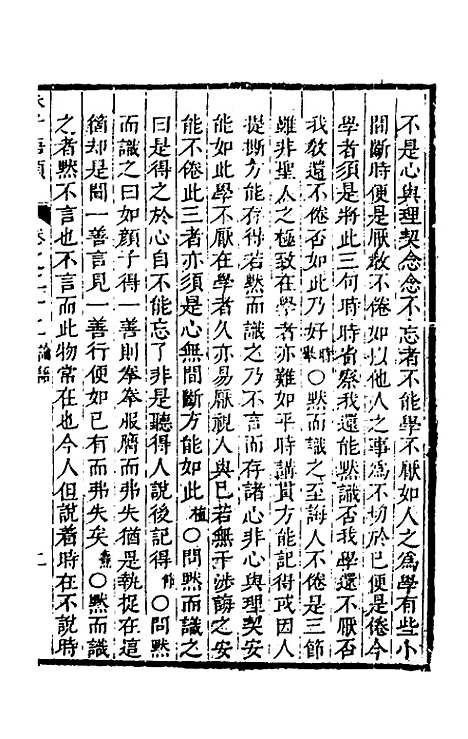 不是心與理契念念不忘者不能學不厭如人之爲學有些小
間斷時便是厭敎不倦如以他人之事爲不切於己便是倦今
學者須是將此三句時時省察我還能默識否我學還不厭否
我敎還不倦否如此乃好時〇默而識之至誨人不倦是三節
雖非聖人之極致在學者亦難如平時講貫方能記得或因人
提撕方能存得若默而識之乃不言而存諸心非心與理契安
能如此學不厭在學者久亦易厭視人與己若無干涉誨之安
能不倦此三者亦須是心無間斷方能如此植〇問默而識之
曰是得之於心自不能忘了非是聽得人說後記得〇問默
而識之曰如顏子得一善則拳拳服膺而弗失猶是執捉在這
箇却是聞一善言見一善行便如己有而弗失矣〇默而識
之者默不言也不言而此物常在也今人但說着時在不說時